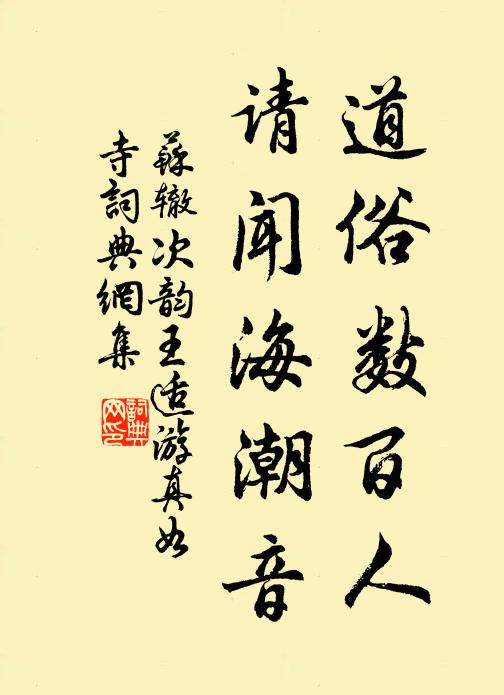 道俗数百人
请闻海潮音
蘇辙次韵王适游真如
寺詞典網集
詞典
网印